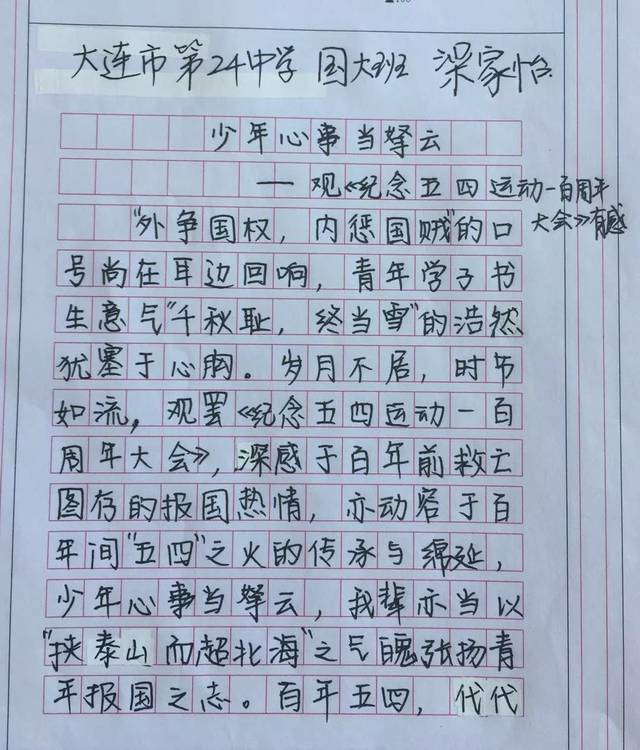 大连市第24中学 国大班 梁家怡
少年心事当拏云
—— 观《纪念五四运动一百周年
大会》有感
"外争国权，内惩国贼"的口
号尚在耳边回响，青年学子书
生意气"千秋耻，终当雪"的浩然
犹塞于心胸。岁月不居，时节
如流，观罢《纪念五四运动一百
周年大会》，深感于百年前救亡
图存的报国热情，亦动容于百
年间"五四"之火的传承与绵延，
少年心事当拏云，我辈亦当以
"挟泰山而超北海"之气魄张扬青
年报国之志。百年五四，代代